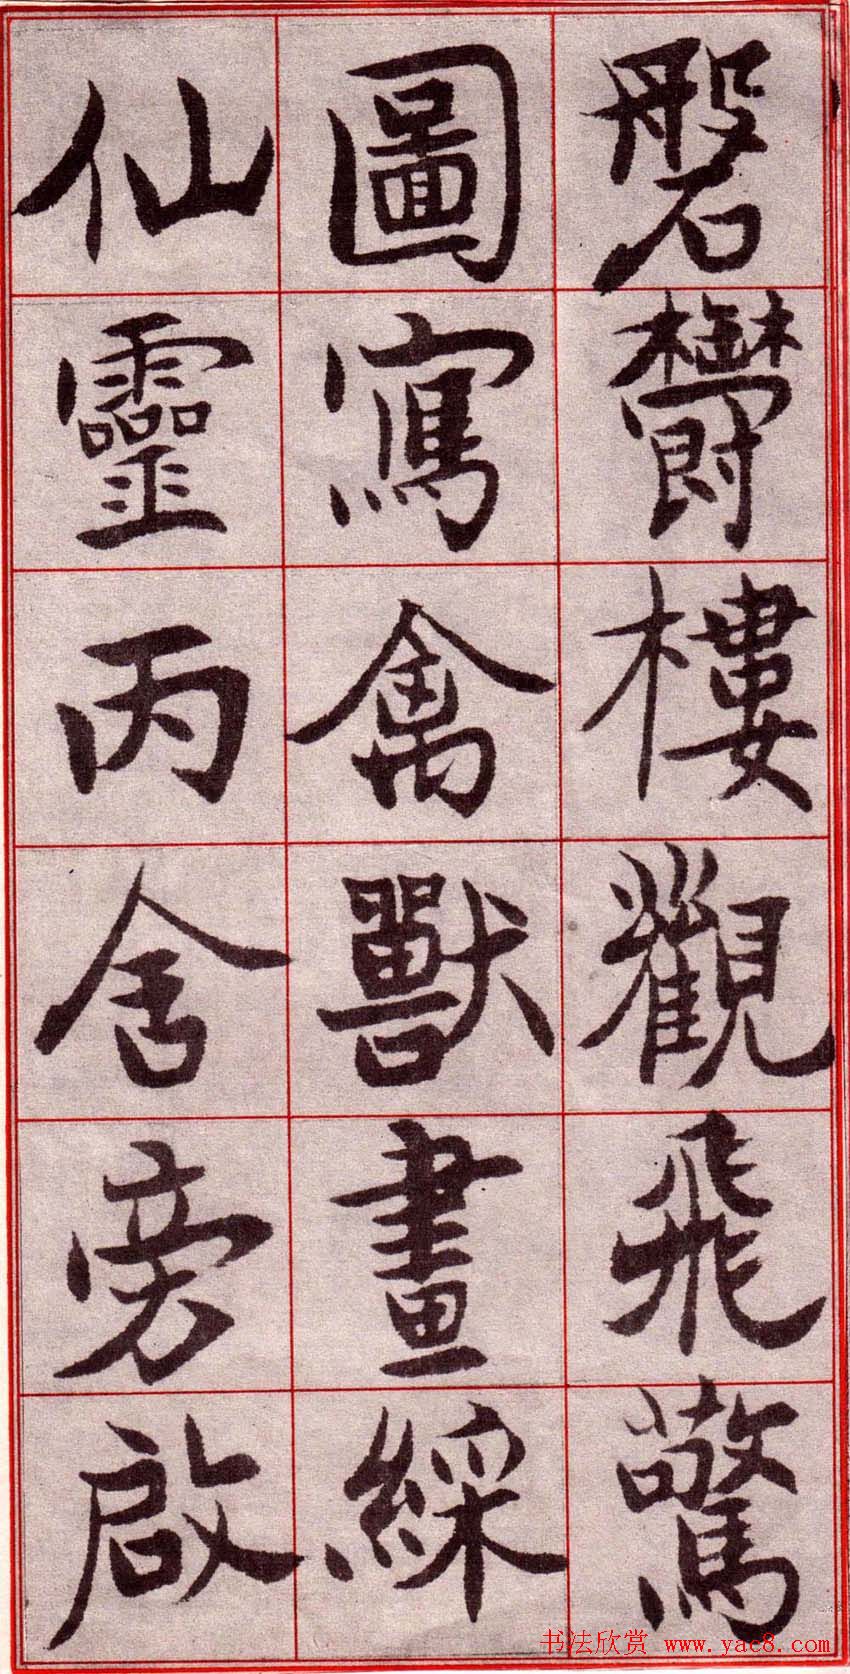 磐鬱樓觀飛驚
圖寫禽獸畫綵
仙靈丙舍旁啟
书法欣赏 www.yac8.com